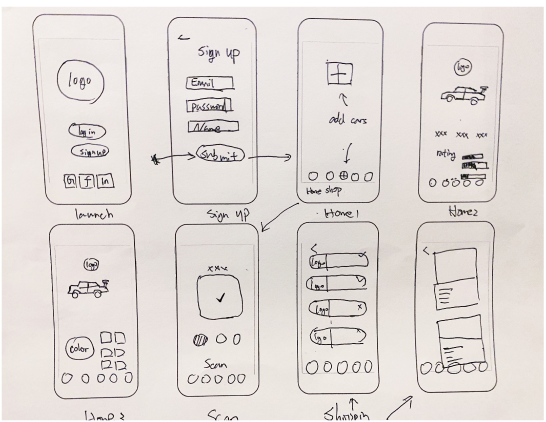 logo
log in
sign up
G f in
launch
Sign up
Email
Password
Name
Submit
Sign up
add cars
Home shop
Home1
logo
xxx xxx xxx
rating
Home2
logo
color
Home 3
xxx
Scan
Scan
logo
logo
logo
logo